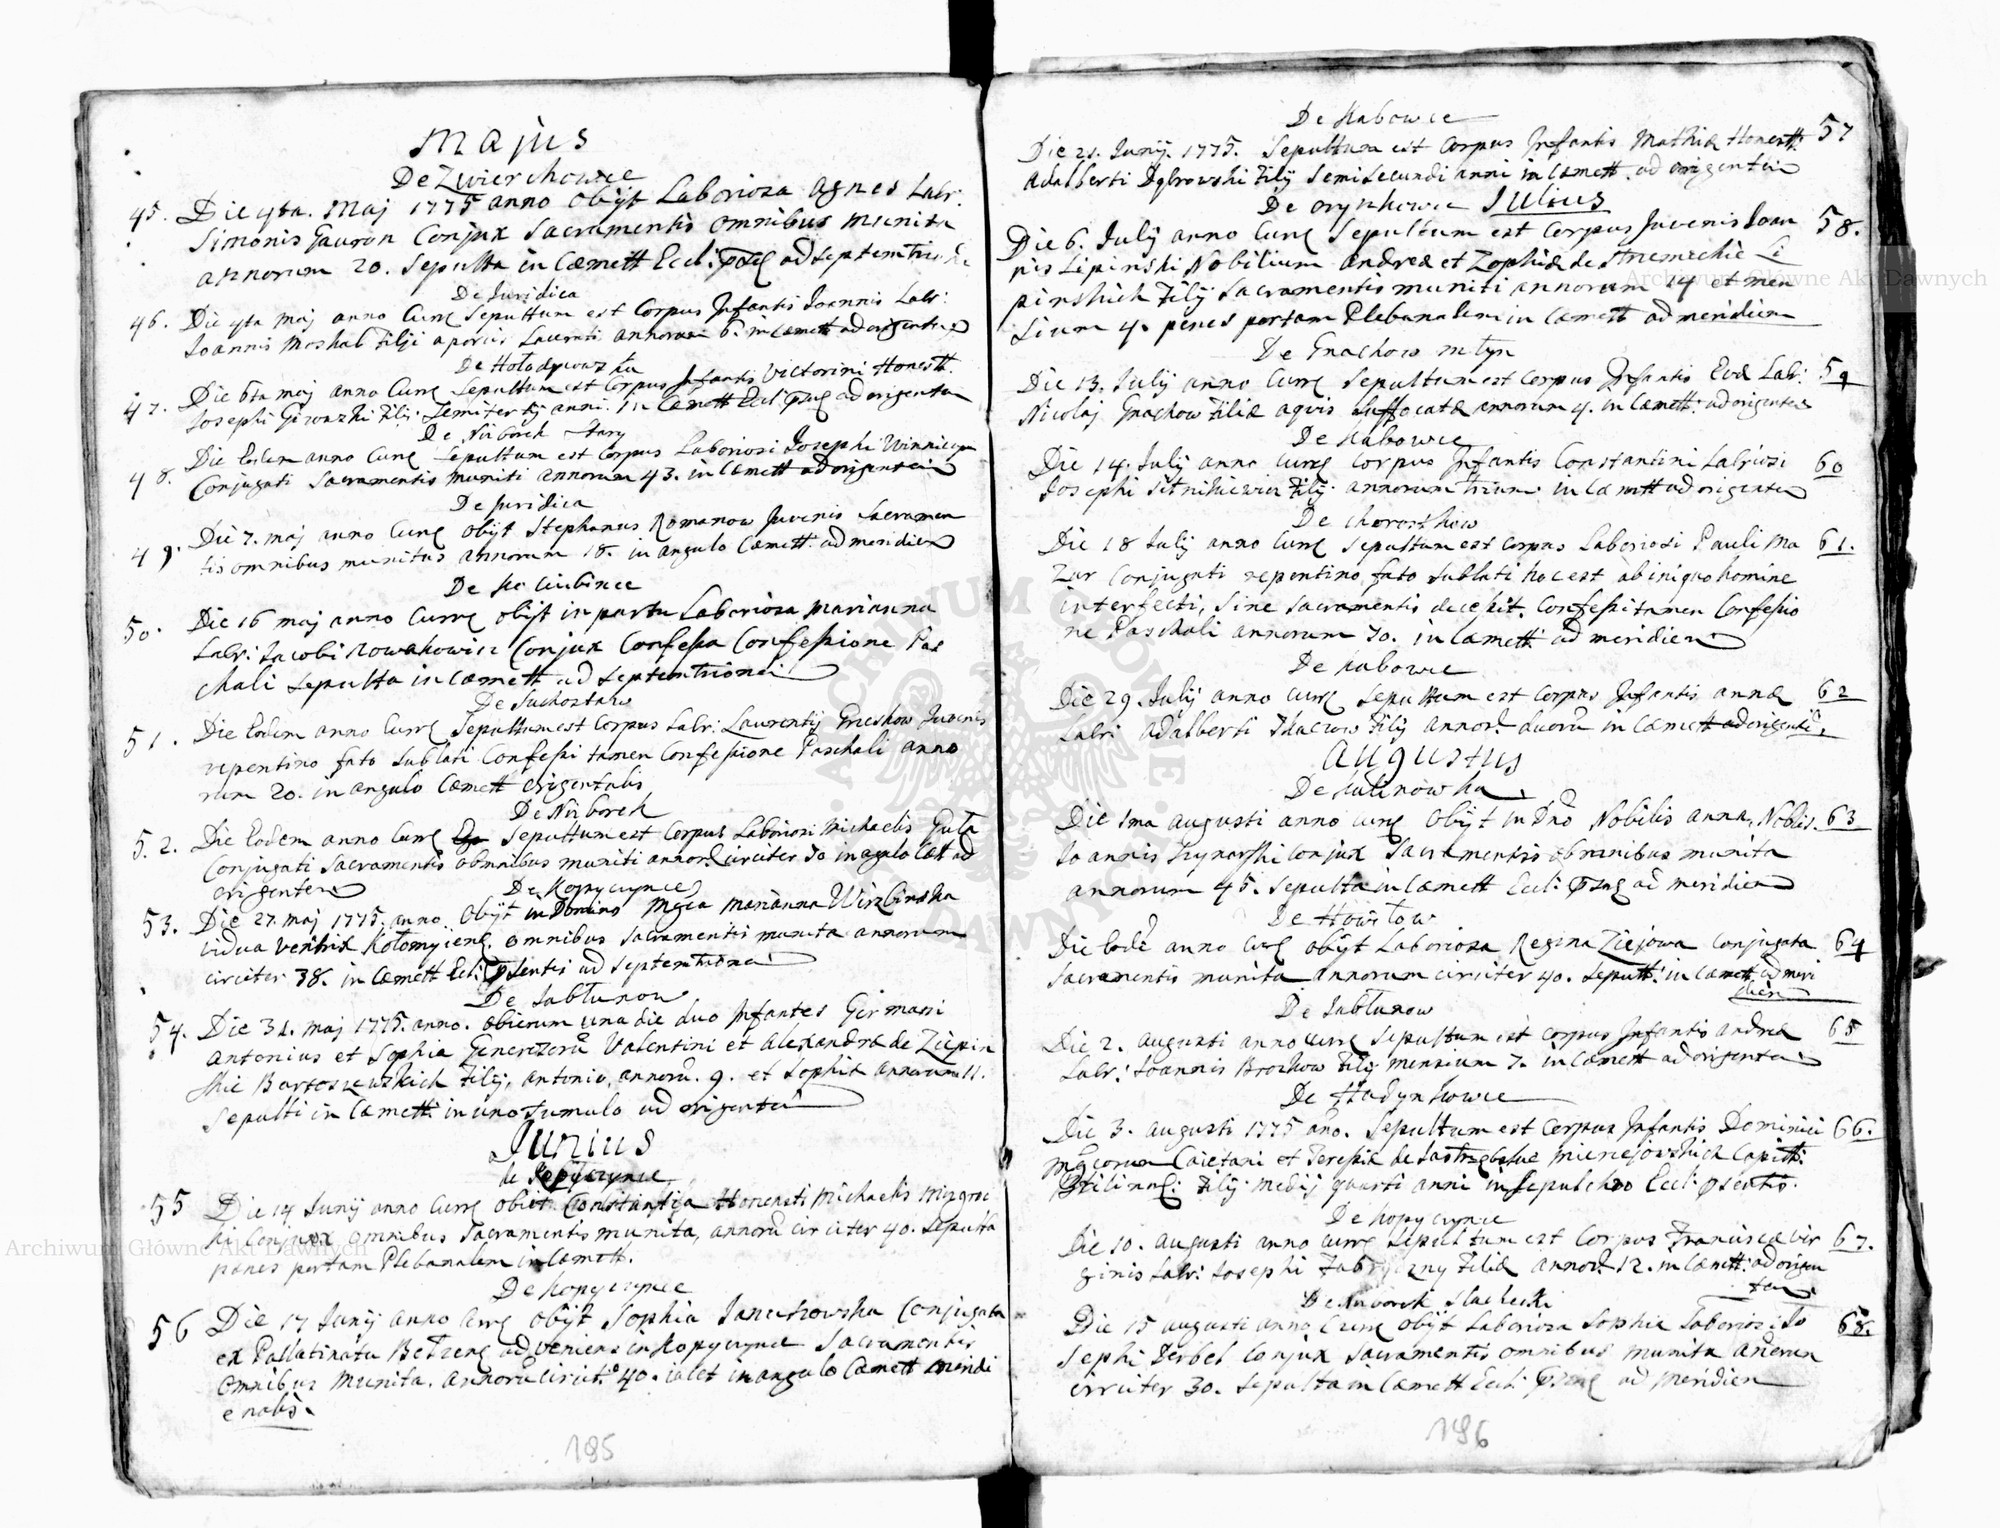 Majus
De Zwierchowce
45. Die 4ta. Maj 1775 anno obijt Laboriosa Agnes Labr:
Simonis Gauron Conjux Sacramentis omnibus munita
annorum 20. Sepulta in Cæmett Eccl: ad Septemtrio
De Juridica
46. Die 4ta Maj anno Curre Sepultum est Corpus Infantis Joannis Labr:
Joannis Moskal filij annorum 6. in Cæmett ad origentem
De Hołodpwszka
47. Die 6ta Maj anno Curre Sepultum est Corpus Infantis Victorini Honest:
Josephi filij Semitertij anni. in Cæmett Eccl: ad origentem
De Niżborek Stary
48. Die Eodem anno Curre Sepultum est Corpus Laboriosi Josephi
Conjugati Sacramentis muniti annorum 43. in Cæmett ad origentem
De Juridica
49. Die 7. Maj anno Curre obijt Stephanus Romanow Juvenis Sacramen
tis omnibus munitus annorum 18. in angulo Cæmett: ad meridiem
De
50. Die 16 Maj anno Curre obijt in partu Laboriosa Marianna
Labr: Jacobi Nowakowicz Conjux Confessa Confessione Pas
chali Sepulta in Cæmett ad Septemtrionem
De Suchostaw
51. Die Eodem anno Curre Sepultum est Corpus Labr: Laurentij Juvenis
repentino fato Sublati Confessi tamen Confessione Paschali anno
rum 20. in angulo Cæmett origentalis
De Niżborek
52. Die Eodem anno Curre Sepultum est Corpus Laboriosi Michaelis Guła
Conjugati Sacramentis omnibus muniti annor: circiter 30 in agulo Cæt ad
origentem
De Kopyczynce
53. Die 27. Maj 1775. anno obijt in Domino Mgca Marianna
vidua omnibus Sacramentis munita annorum
circiter 38. in Cæmett Eccl: psentis ad Septemtrionem
De Jabłunow
54. Die 31. Maj 1775. anno. obierunt una die duo Infantes Germani
Antonius et Sophia Generozorũ Valentini et Alexandra de
Bartoszewskich filij, Antonio, annorũ. 9. et Sophia annorum 11.
Sepulti in Cæmett: in uno Tumulo ad origentem
Junius
de Kopyczynce
55 Die 14 Junij anno Curre obiit Constantija Honesti Michaelis
Conjux omnibus Sacramentis munita, annorũ circiter 40. Sepulta
penes portam Plebanalem in Cæmett.
De Kopyczynce
56 Die 17 Junij anno Curre obijt Sophia Januszowska Conjugata
ex Pallatinatu adveniens in Kopyczynce Sacramentis
omnibus munita. annorũ circit: 40. iacet in angulo Cæmett meridi
enalis.
195
De Kabowce
Die 21. Junij. 1775. Sepultum est Corpus Infantis Mathiæ Honestt: 57
Adalberti Dąbrowski filij Semisecundi anni in Cæmett. ad origentem
De Oryszkowce Julius
Die 6. Julij anno Curre Sepultum est Corpus Juvenis Joan 58.
nis Lipinski Nobilium Andreæ et Zophiæ de Li
pinskich filij Sacramentis muniti annorum 14 et men
sium 4. penes portam Plebanalem in Cæmett ad meridiem
De Gnachow młyn
Die 13. Julij anno Curre Sepultum est Corpus Infantis Evæ Labr: 59
Nicolaj Gnachow filiæ aquis Suffocatæ annorum 4. in Cæmett: ad origentem
De Kabowce
Die 14. Julij anno Curre Corpus Infantis Constantini Labriosi 60
Josephi Sitnikiewicz filij annorum trium in Cæmett ad origentem
De Chorostkow
Die 18 Julij anno Curre Sepultum est Corpus Laboriosi Pauli Ma 61.
zur Conjugati repentino fato Sublati hoc est ab iniquo homine
interfecti, Sine Sacramentis decessit. Confessi tamen Confessio
ne Paschali annorum 30. in Cæmett: ad meridiem
De Kabowce
Die 29. Julij anno Curre Sepultum est Corpus Infantis Annæ 62
Labr: Adalberti Tkaczow filij annor: duorũ in Cæmett ad origente.
Augustus
De Kalinowka
Die 1ma Augusti anno Curre obijt in Dno Nobilis Anna, Noblis. 63
Joannis Conjux Sacramentis omnibus munita
annorum 45. Sepulta in Cæmett Eccl: ad meridiem
De Howiłow
Die Eodẽ anno Curre obijt Laboriosa Regina Ziejowa Conjugata 64
Sacramentis munita annorum circiter 40. Sepult: in Cæmett ad meri
diem
De Jabłunow
Die 2. Augusti anno Curre Sepultum est Corpus Infantis Andreæ 65
Labr: Joannis Brozkow filij mensium 7. in Cæmett ad origentem
De Hadynkowce
Die 3. Augusti 1775 ano. Sepultum est Corpus Infantis Dominici 66.
Mgcorum Caietani et Teresiæ de Miereiowskich Capitt:
filij medij quarti anni in Sepulchro Eccl: psentis.
De Kopyczynce
Die 10. Augusti anno Curre Sepultum est Corpus Franciscæ vir 67.
ginis Labr: Josephi Fabryczny filiæ annor: 12. in Cæmett: ad origen
tem
De Niżborek Szlachecki
Die 15 Augusti anno Curre obijt Laboriosa Sophia Laboriosi Jo 68.
sephi Derbel Conjux Sacramentis omnibus munita
circiter 30. Sepulta in Cæmett Eccl: ad meridiem
196
Archiwum Główne Akt Dawnych
Archiwum Główne Akt Dawnych
ARCHIWUM GŁÓWNE AKT DAWNYCH